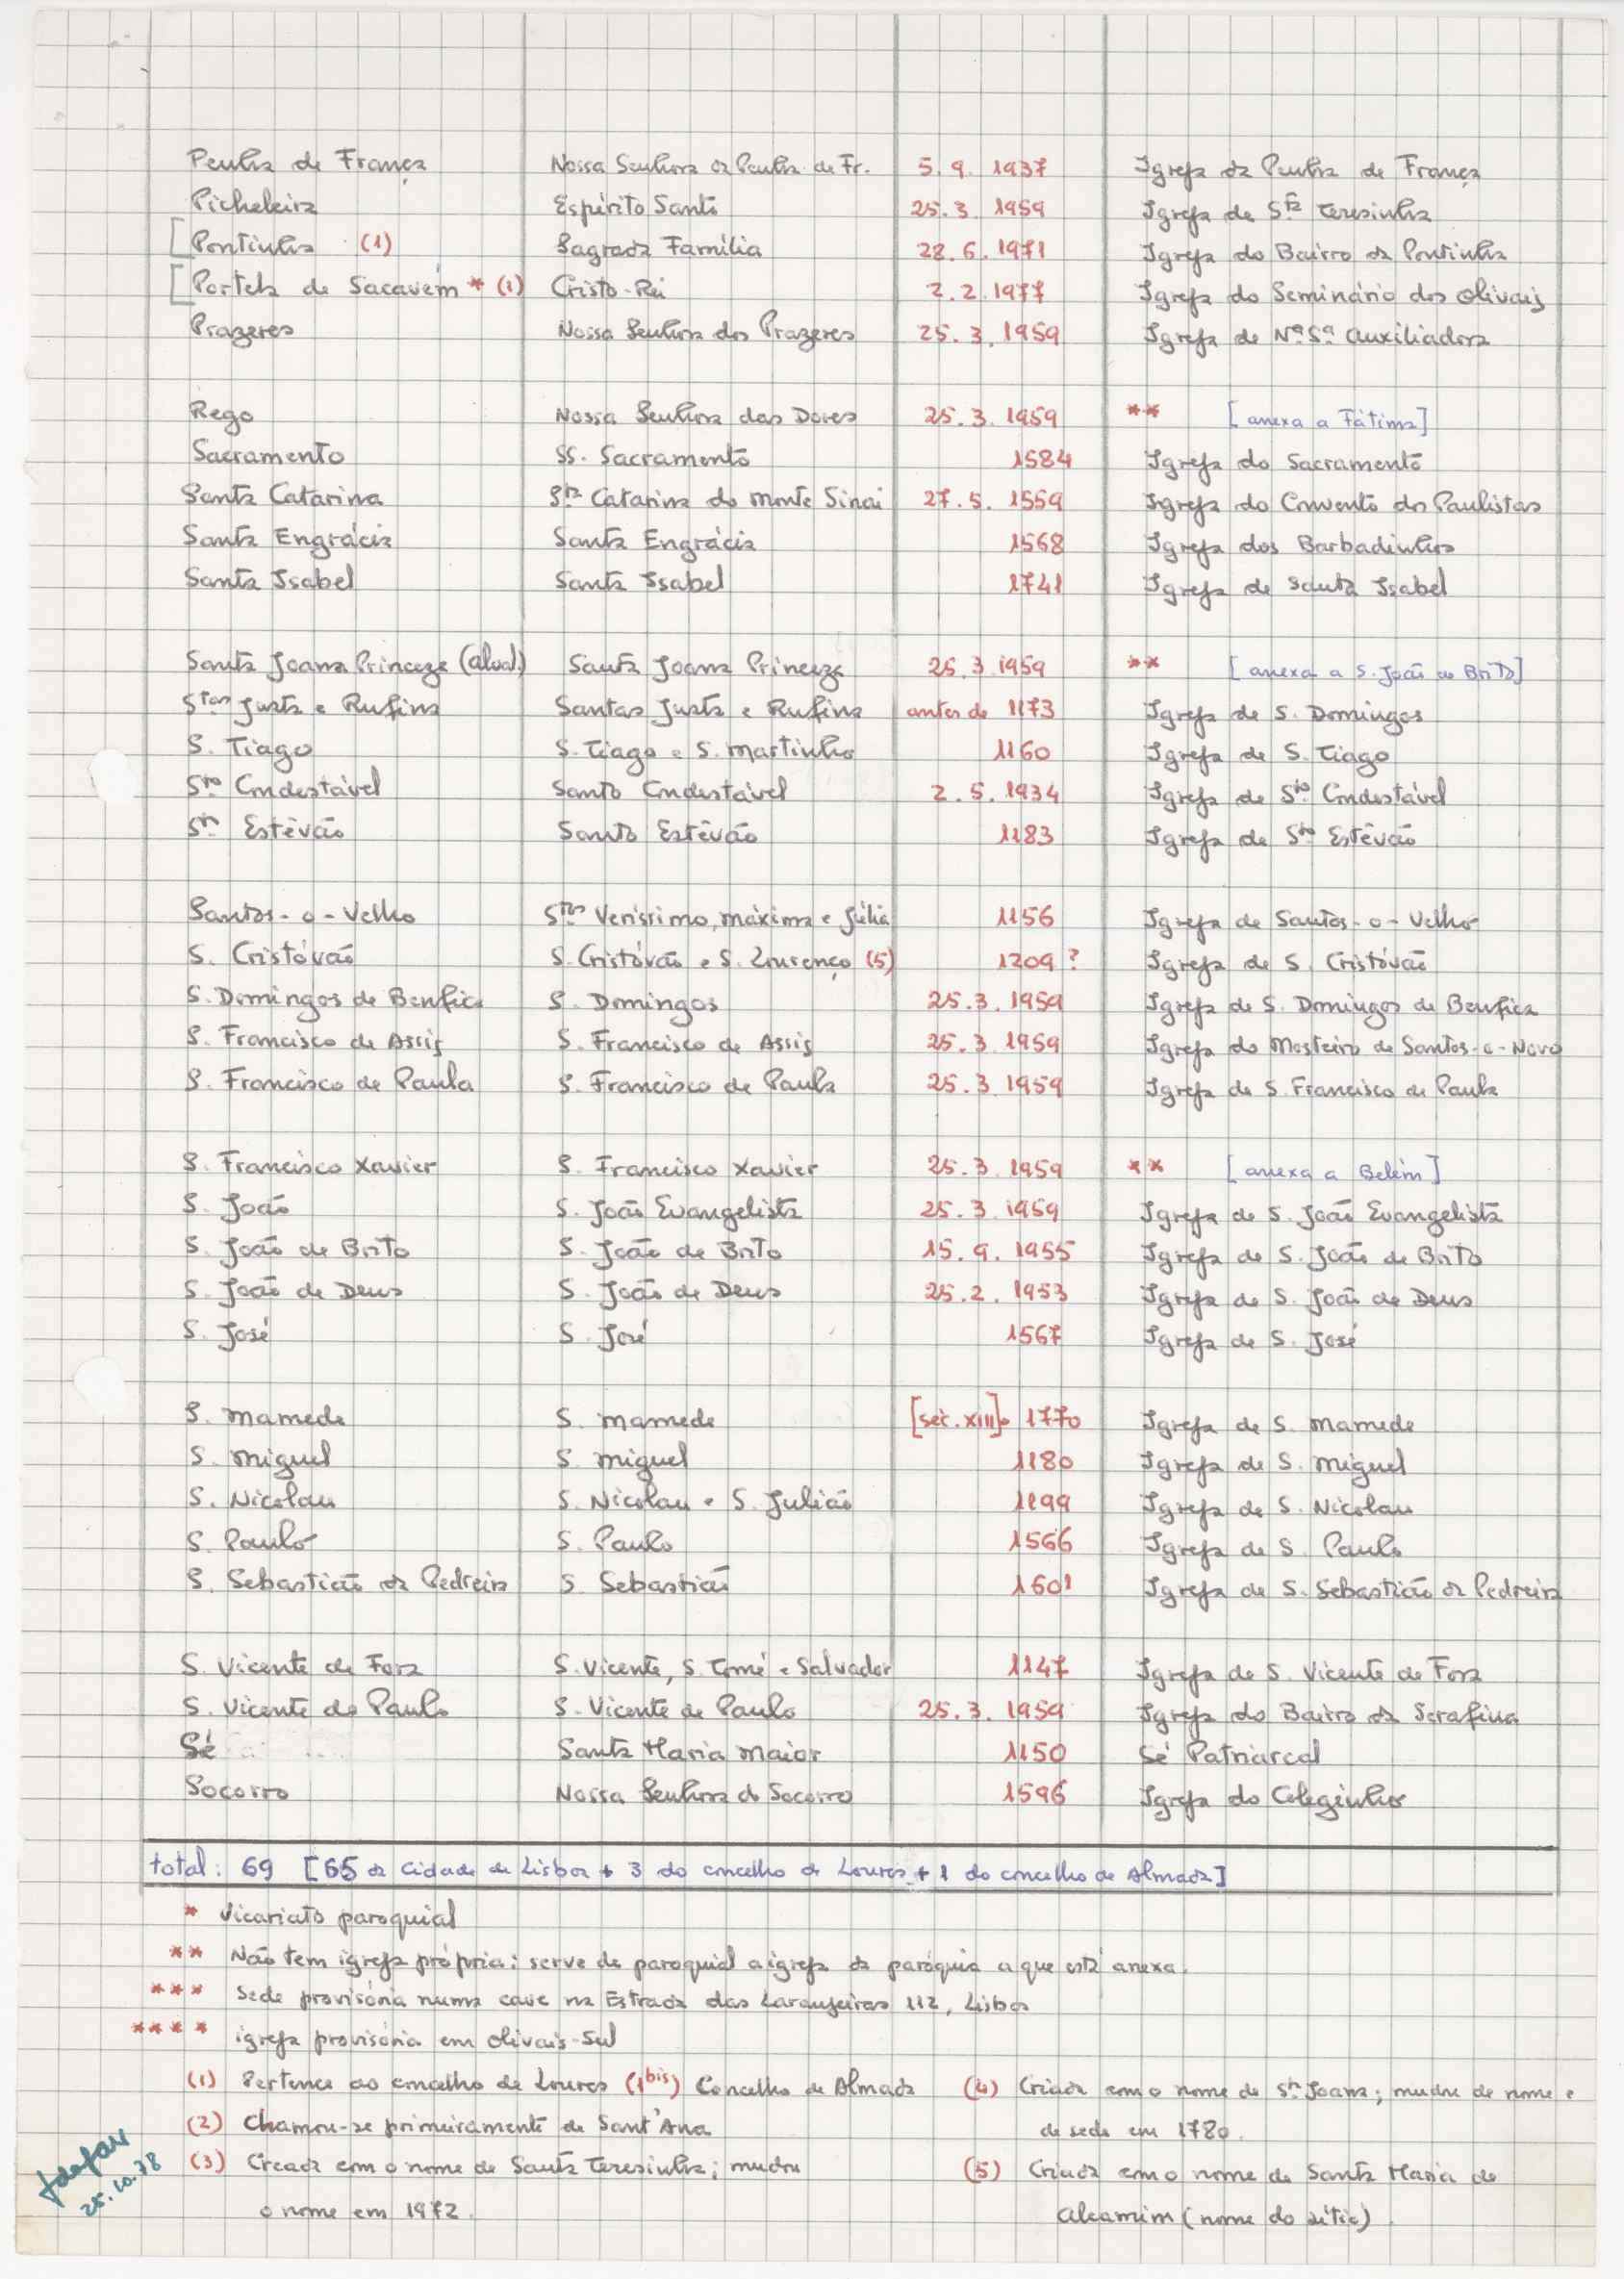 Penha de França Nossa Senhora da Penha de Fr. 5. 9. 1937 Igreja da Penha de França
Picheleira Espírito Santo 25. 3. 1959 Igreja de Stª Teresinha
[Pontinha (1) Sagrada Família 28. 6. 1971 Igreja do Bairro da Pontinha
[Portela de Sacavém * (1) Cristo-Rei 2. 2. 1977 Igreja do Seminário dos Olivais
Prazeres Nossa Senhora dos Prazeres 25. 3. 1959 Igreja de Nª Sª Auxiliadora
Rego Nossa Senhora das Dores 25. 3. 1959 ** [anexa a Fátima]
Sacramento SS. Sacramento 1584 Igreja do Sacramento
Santa Catarina Stª Catarina do Monte Sinai 27. 5. 1559 Igreja do Convento dos Paulistas
Santa Engrácia Santa Engrácia 1568 Igreja dos Barbadinhos
Santa Isabel Santa Isabel 1741 Igreja de Santa Isabel
Santa Joana Princeza (Alval.) Santa Joana Princeza 25. 3. 1959 ** [anexa a S. João de Brito]
Stas Justa e Rufina Santas Justa e Rufina antes de 1173 Igreja de S. Domingos
S. Tiago S. Tiago e S. Martinho 1160 Igreja de S. Tiago
Sto Condestável Santo Condestável 2. 5. 1934 Igreja de Sto Condestável
Sto Estêvão Santo Estêvão 1183 Igreja de Sto Estêvão
Santos-o-Velho Stos Veríssimo, Máxima e Júlia 1156 Igreja de Santos-o-Velho
S. Cristóvão S. Cristóvão e S. Lourenço (5) 1209 ? Igreja de S. Cristóvão
S. Domingos de Benfica S. Domingos 25. 3. 1959 Igreja de S. Domingos de Benfica
S. Francisco de Assis S. Francisco de Assis 25. 3. 1959 Igreja do Mosteiro de Santos-o-Novo
S. Francisco de Paula S. Francisco de Paula 25. 3. 1959 Igreja de S. Francisco de Paula
S. Francisco Xavier S. Francisco Xavier 25. 3. 1959 ** [anexa a Belém]
S. João S. João Evangelista 25. 3. 1959 Igreja de S. João Evangelista
S. João de Brito S. João de Brito 15. 9. 1955 Igreja de S. João de Brito
S. João de Deus S. João de Deus 25. 2. 1953 Igreja de S. João de Deus
S. José S. José 1567 Igreja de S. José
S. Mamede S. Mamede [séc. XIII] 1770 Igreja de S. Mamede
S. Miguel S. Miguel 1180 Igreja de S. Miguel
S. Nicolau S. Nicolau e S. Julião 1199 Igreja de S. Nicolau
S. Paulo S. Paulo 1566 Igreja de S. Paulo
S. Sebastião da Pedreira S. Sebastião 1601 Igreja de S. Sebastião da Pedreira
S. Vicente de Fora S. Vicente, S. Tomé e Salvador 1147 Igreja de S. Vicente de Fora
S. Vicente de Paulo S. Vicente de Paulo 25. 3. 1959 Igreja do Bairro da Serafina
Sé Santa Maria Maior 1150 Sé Patriarcal
Socorro Nossa Senhora do Socorro 1596 Igreja do Coleginho
total: 69 [65 da Cidade de Lisboa + 3 do concelho de Loures + 1 do concelho de Almada]
* Vicariato paroquial
** Não tem igreja própria; serve de paroquial a igreja da paróquia a que está anexa.
*** Sede provisória numa cave na Estrada das Laranjeiras 112, Lisboa
**** igreja provisória em Olivais-Sul
(1) Pertence ao concelho de Loures (1bis) Concelho de Almada (4) Criada com o nome de Stª Joana; mudou de nome e
(2) Chamou-se primeiramente de Sant'Ana de sede em 1780.
(3) Creada com o nome de Santa Teresinha; mudou (5) Criada com o nome de Santa Maria de
o nome em 1972. Alcamim (nome do sítio)
25.10.78